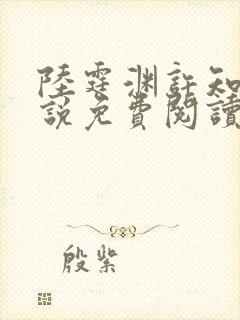 陸霆渊許知
說免費閱讀
殷紫